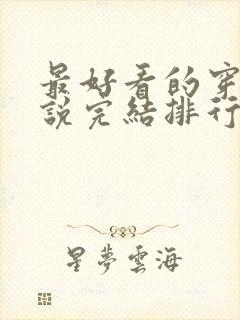 最好看的穿
說完結排行
星夢雲海